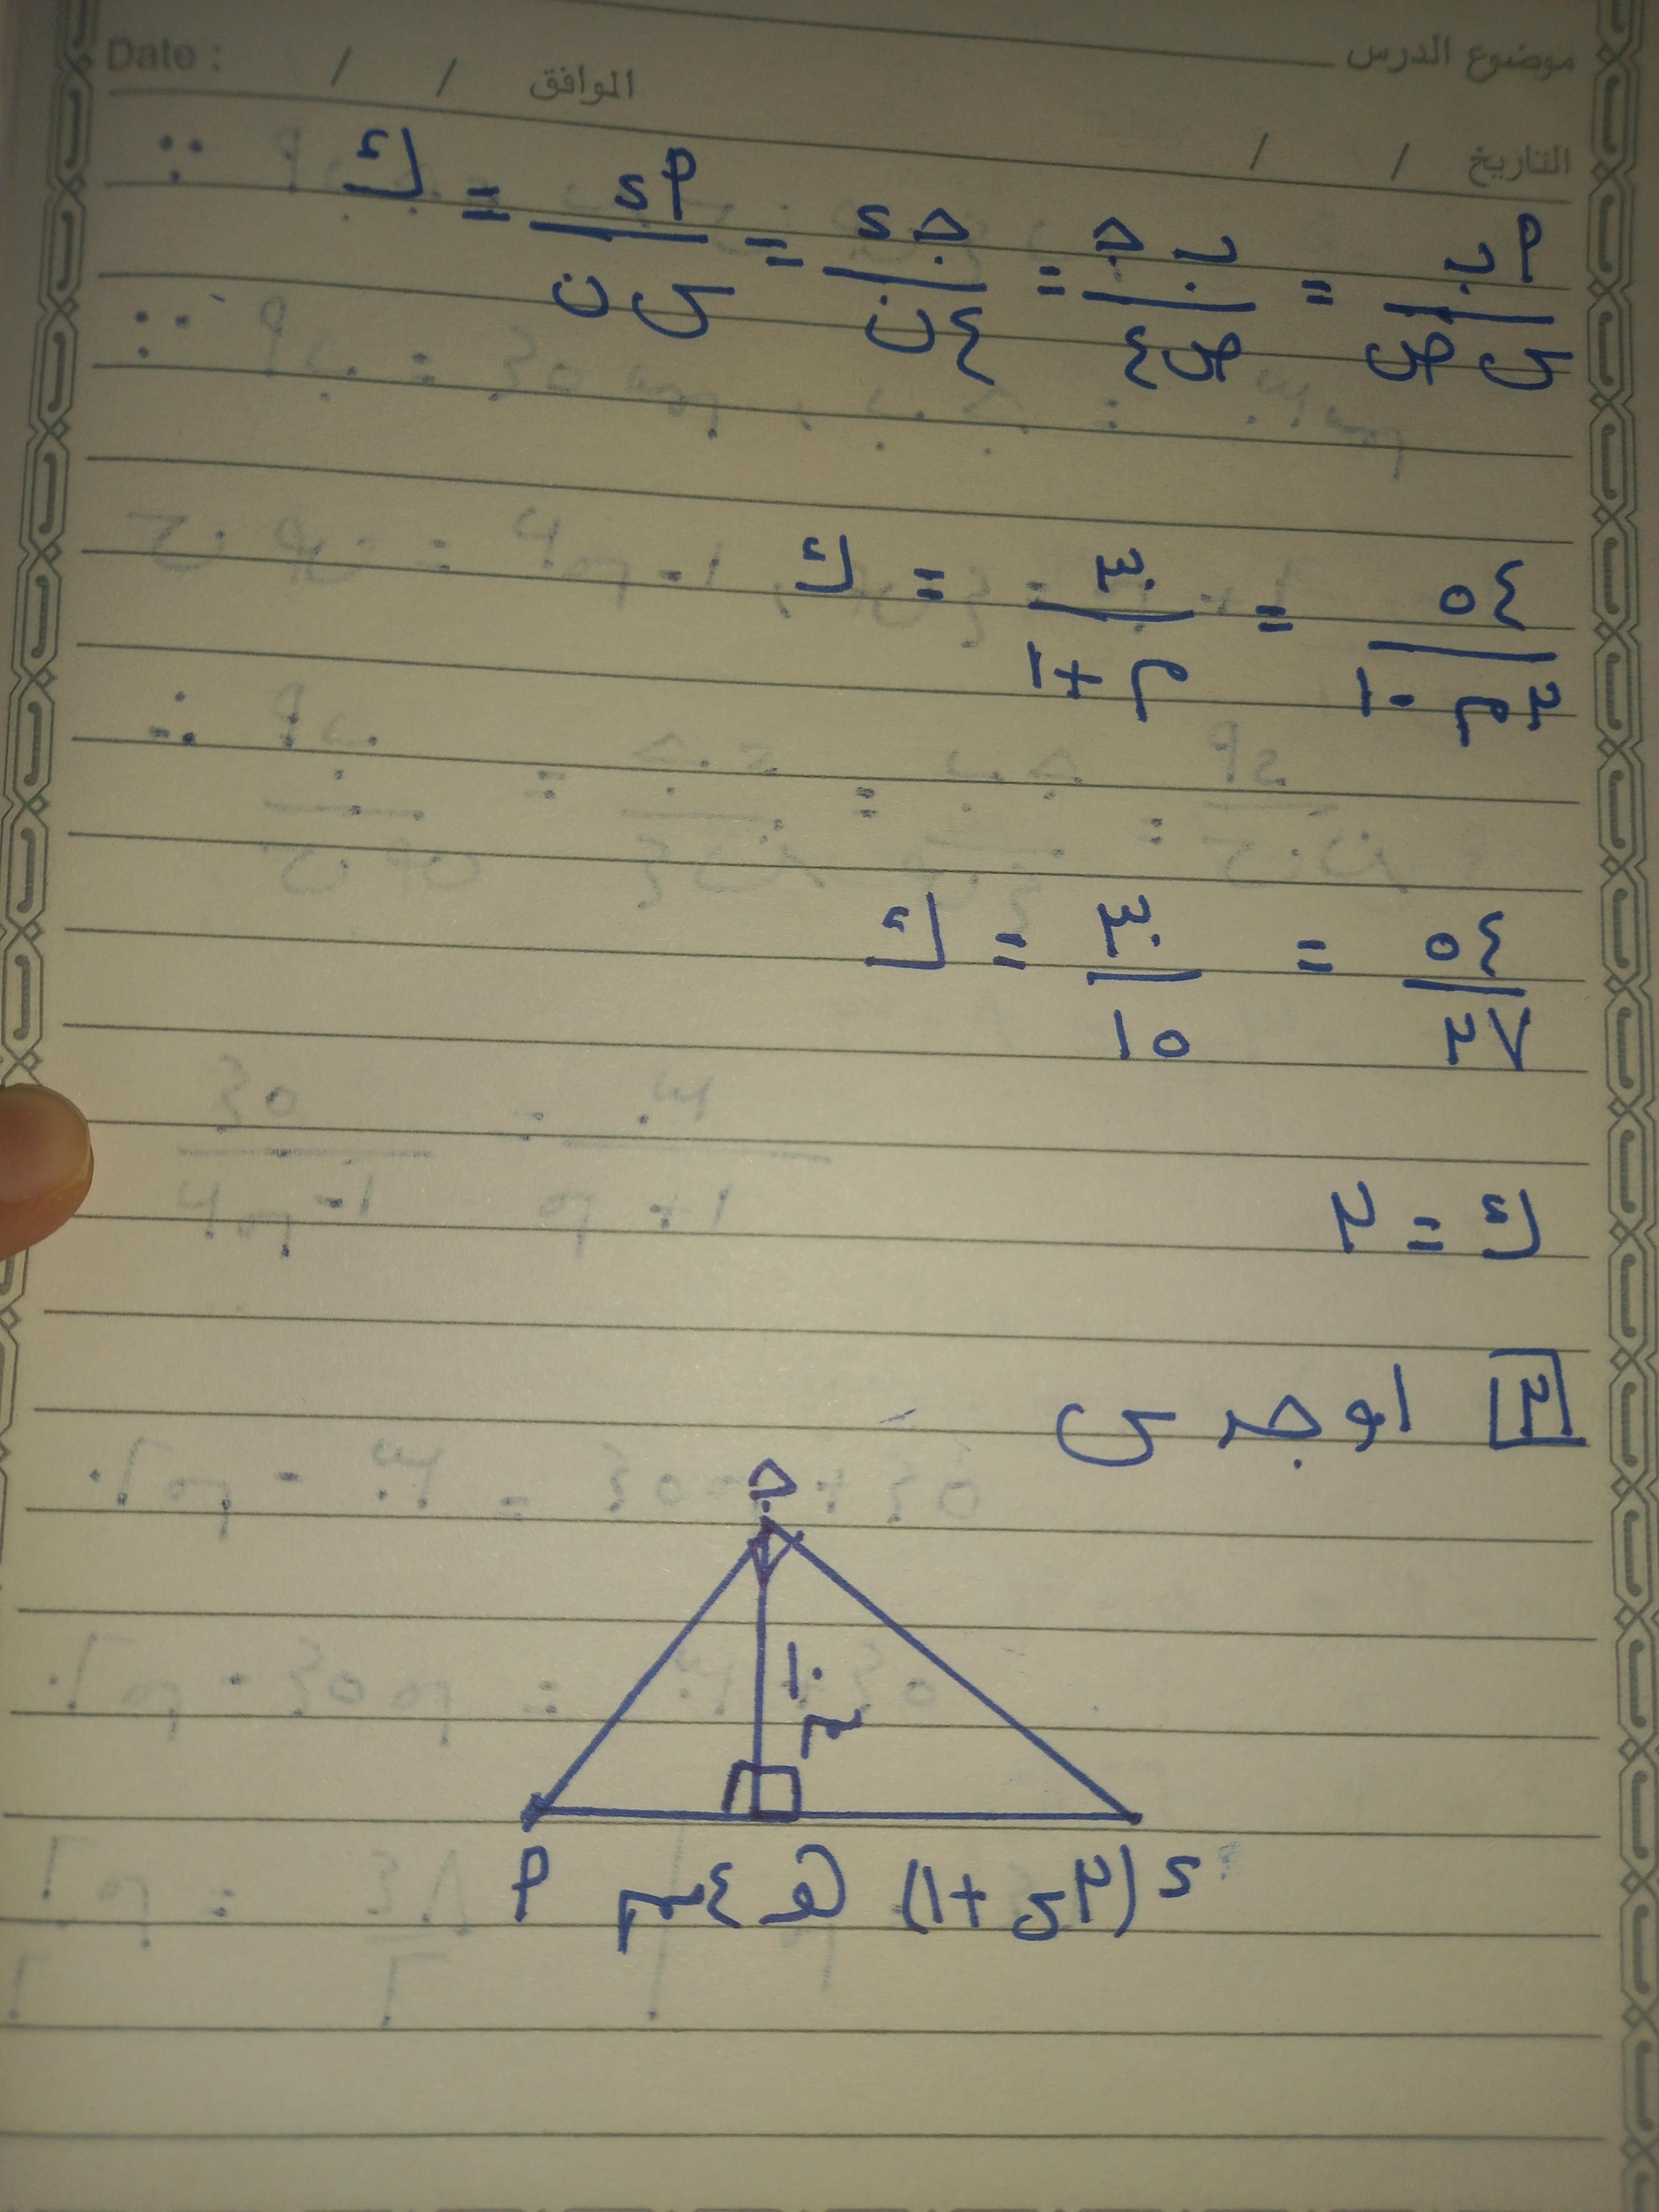 موضوع الدرس
Date : / / الموافق
التاريخ / /
∵ أب/س ص = ب ج/ص ع = ج د/ع ن = أ د/س ن = ك
٥٤/٢م - ١ = ٣٠/م + ١ = ك
٥٤/٢٧ = ٣٠/١٥ = ك
ك = ٢
٢ اوجد س
ج
١٠ سم
د (٢س + ١) هـ ٤سم أ